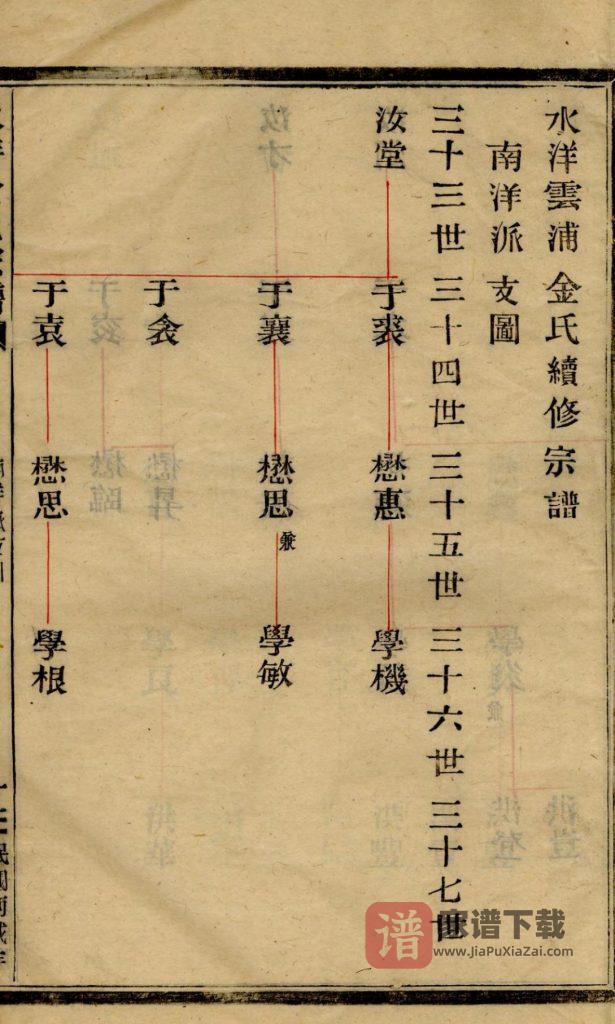 水洋雲浦金氏續修宗譜
南洋派支圖
三十三世 三十四世 三十五世 三十六世 三十七世
汝堂
于裘 懋惠 學機
于襄 懋思 兼 學敏
于衾
于袁 懋思 學根
谱 家谱下载
www.JiaPuXiaZai.com